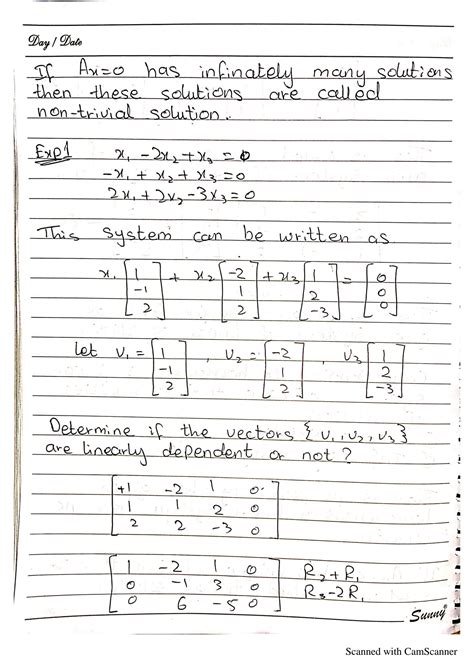 Day / Date
If Ax=0 has infinately many solutions
then these solutions are called
non-trivial solution.
Exp1 x₁ - 2x₂ + x₃ = 0
-x₁ + x₂ + x₃ = 0
2x₁ + 2x₂ - 3x₃ = 0
This system can be written as
x₁ [1 -1 2] + x₂ [-2 1 2] + x₃ [1 2 -3] = [0 0 0]
let v₁ = [1 -1 2] , v₂ = [-2 1 2] , v₃ [1 2 -3]
Determine if the vectors {v₁, v₂, v₃}
are linearly dependent or not ?
+1 -2 1 0
1 1 2 0
2 2 -3 0
1 -2 1 0 R₂+R₁
0 -1 3 0 R₃-2R₁
0 6 -5 0
Sunny
Scanned with CamScanner